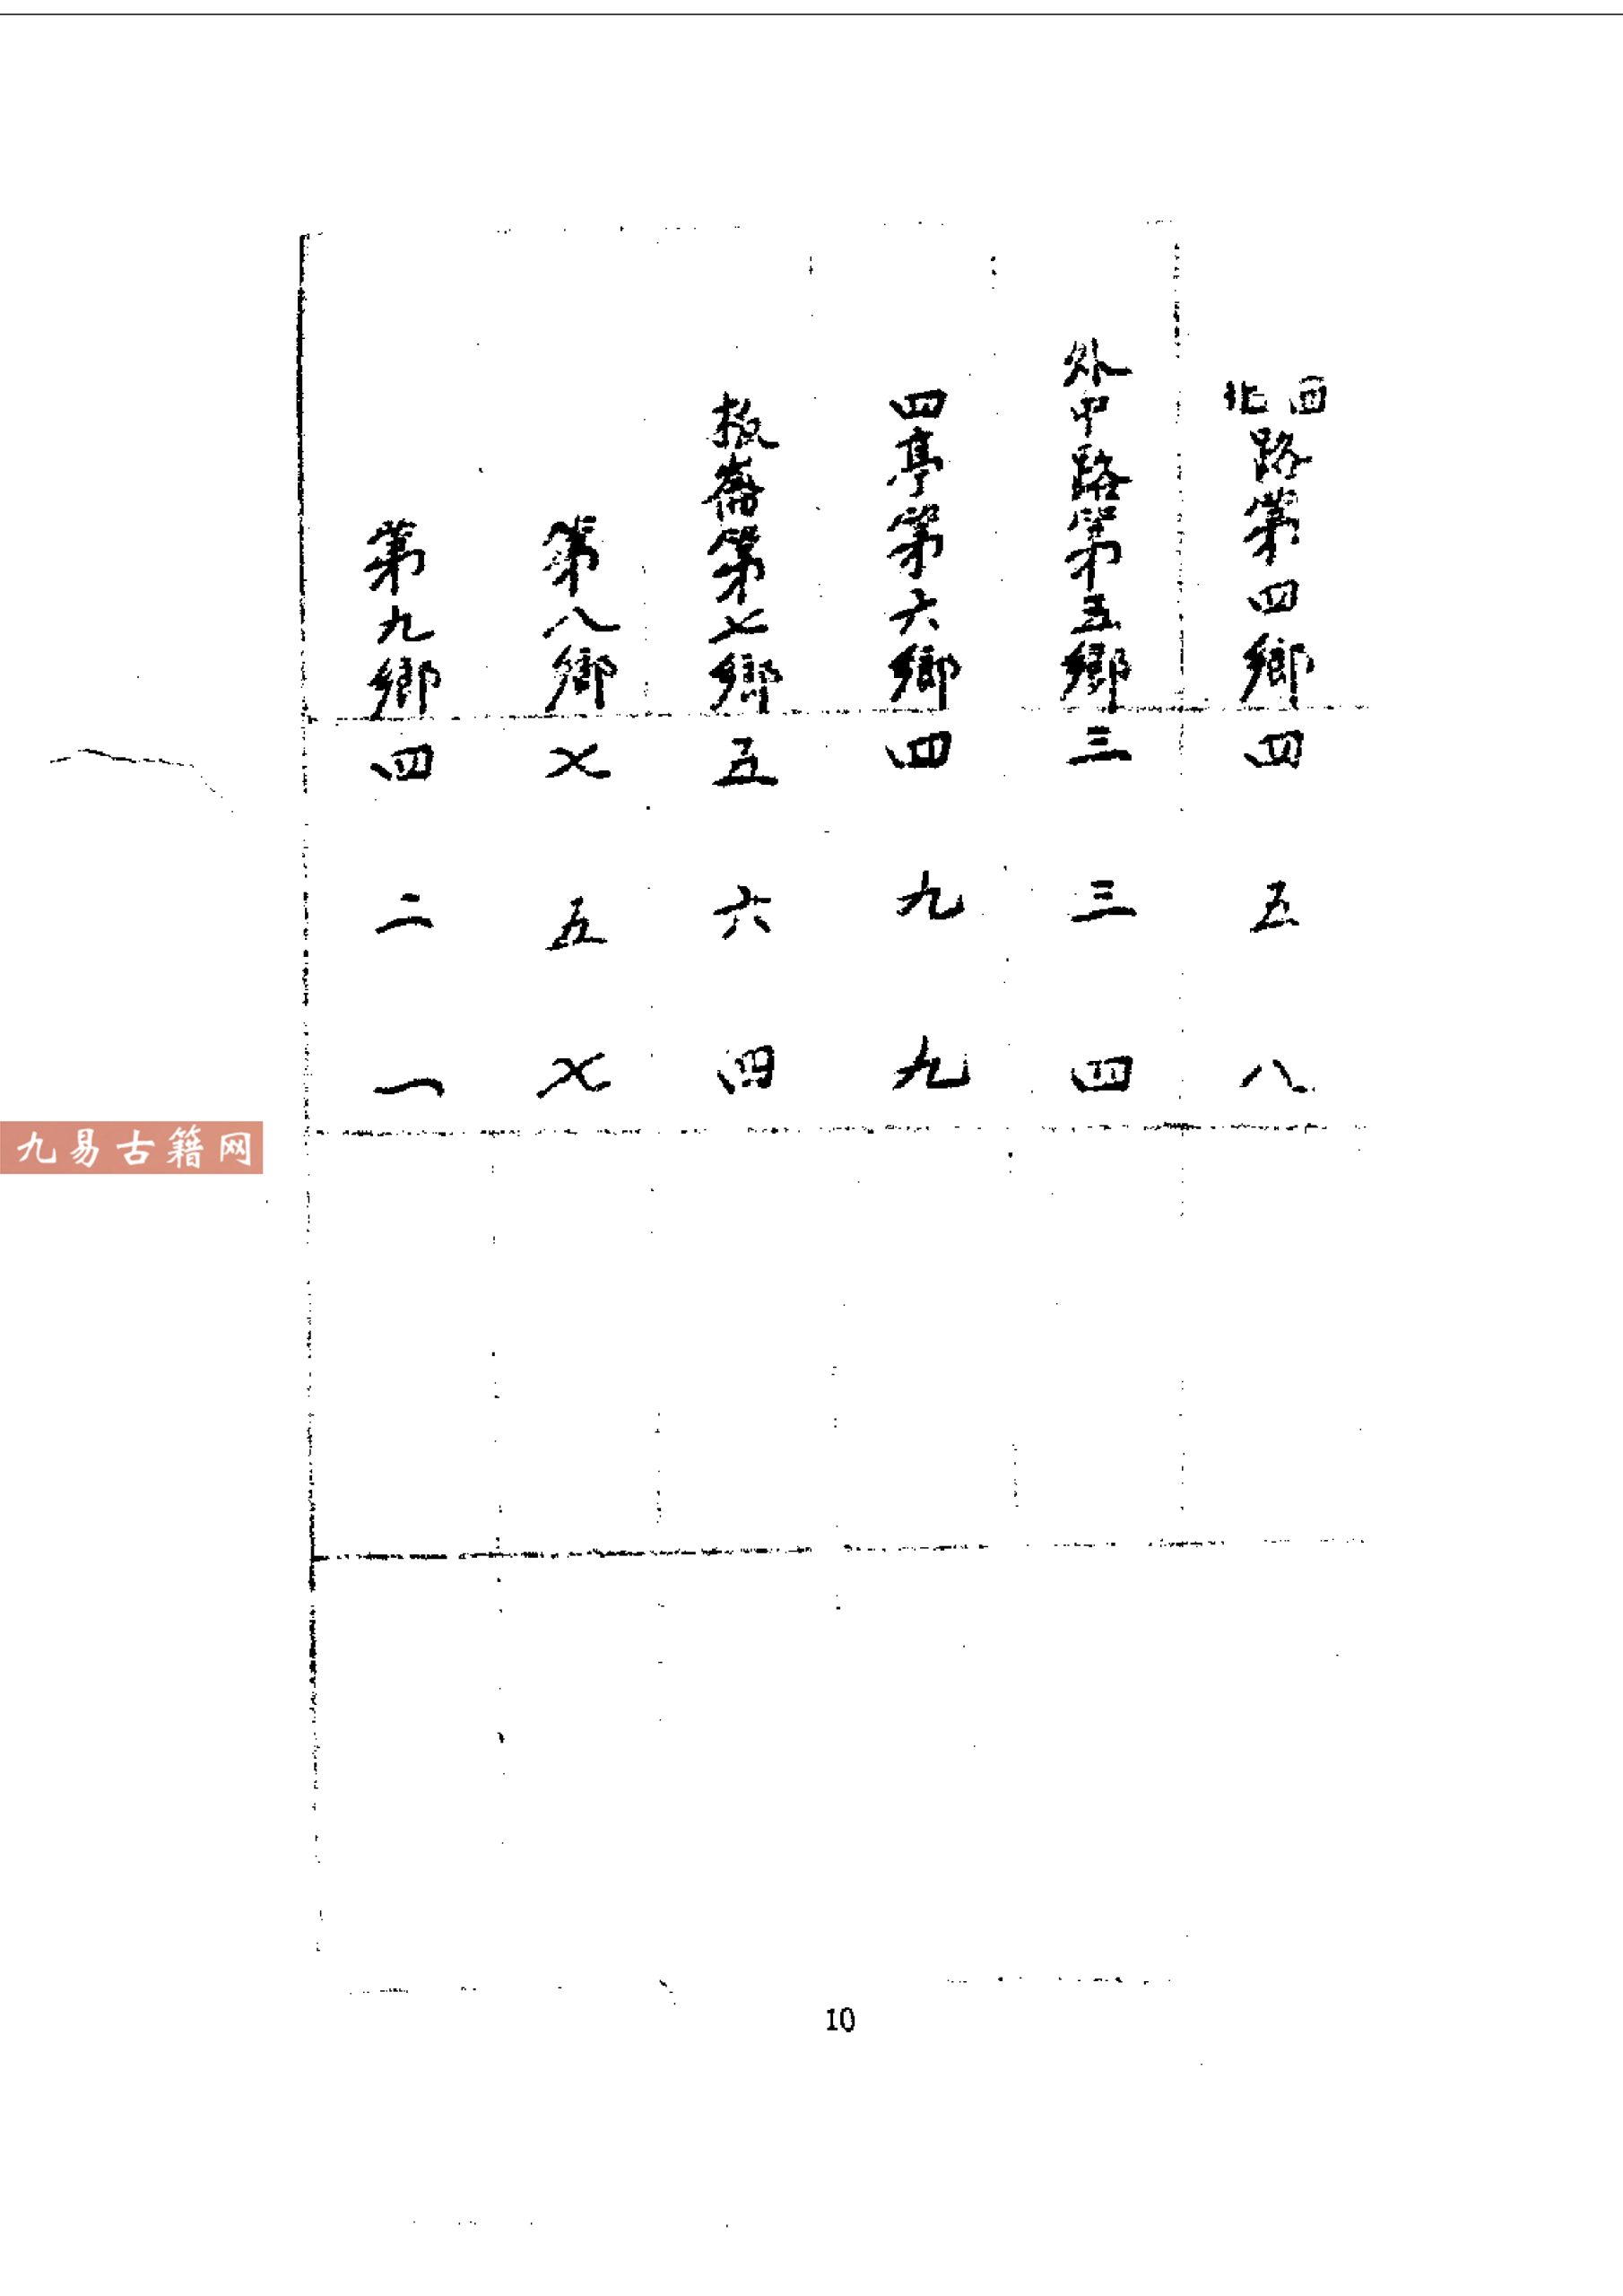 西北路第四鄉四五八
外中路第五鄉三三四
四亭第六鄉四九九
板崙第七鄉五六四
第八鄉七五七
第九鄉四二一
九易古籍网
10